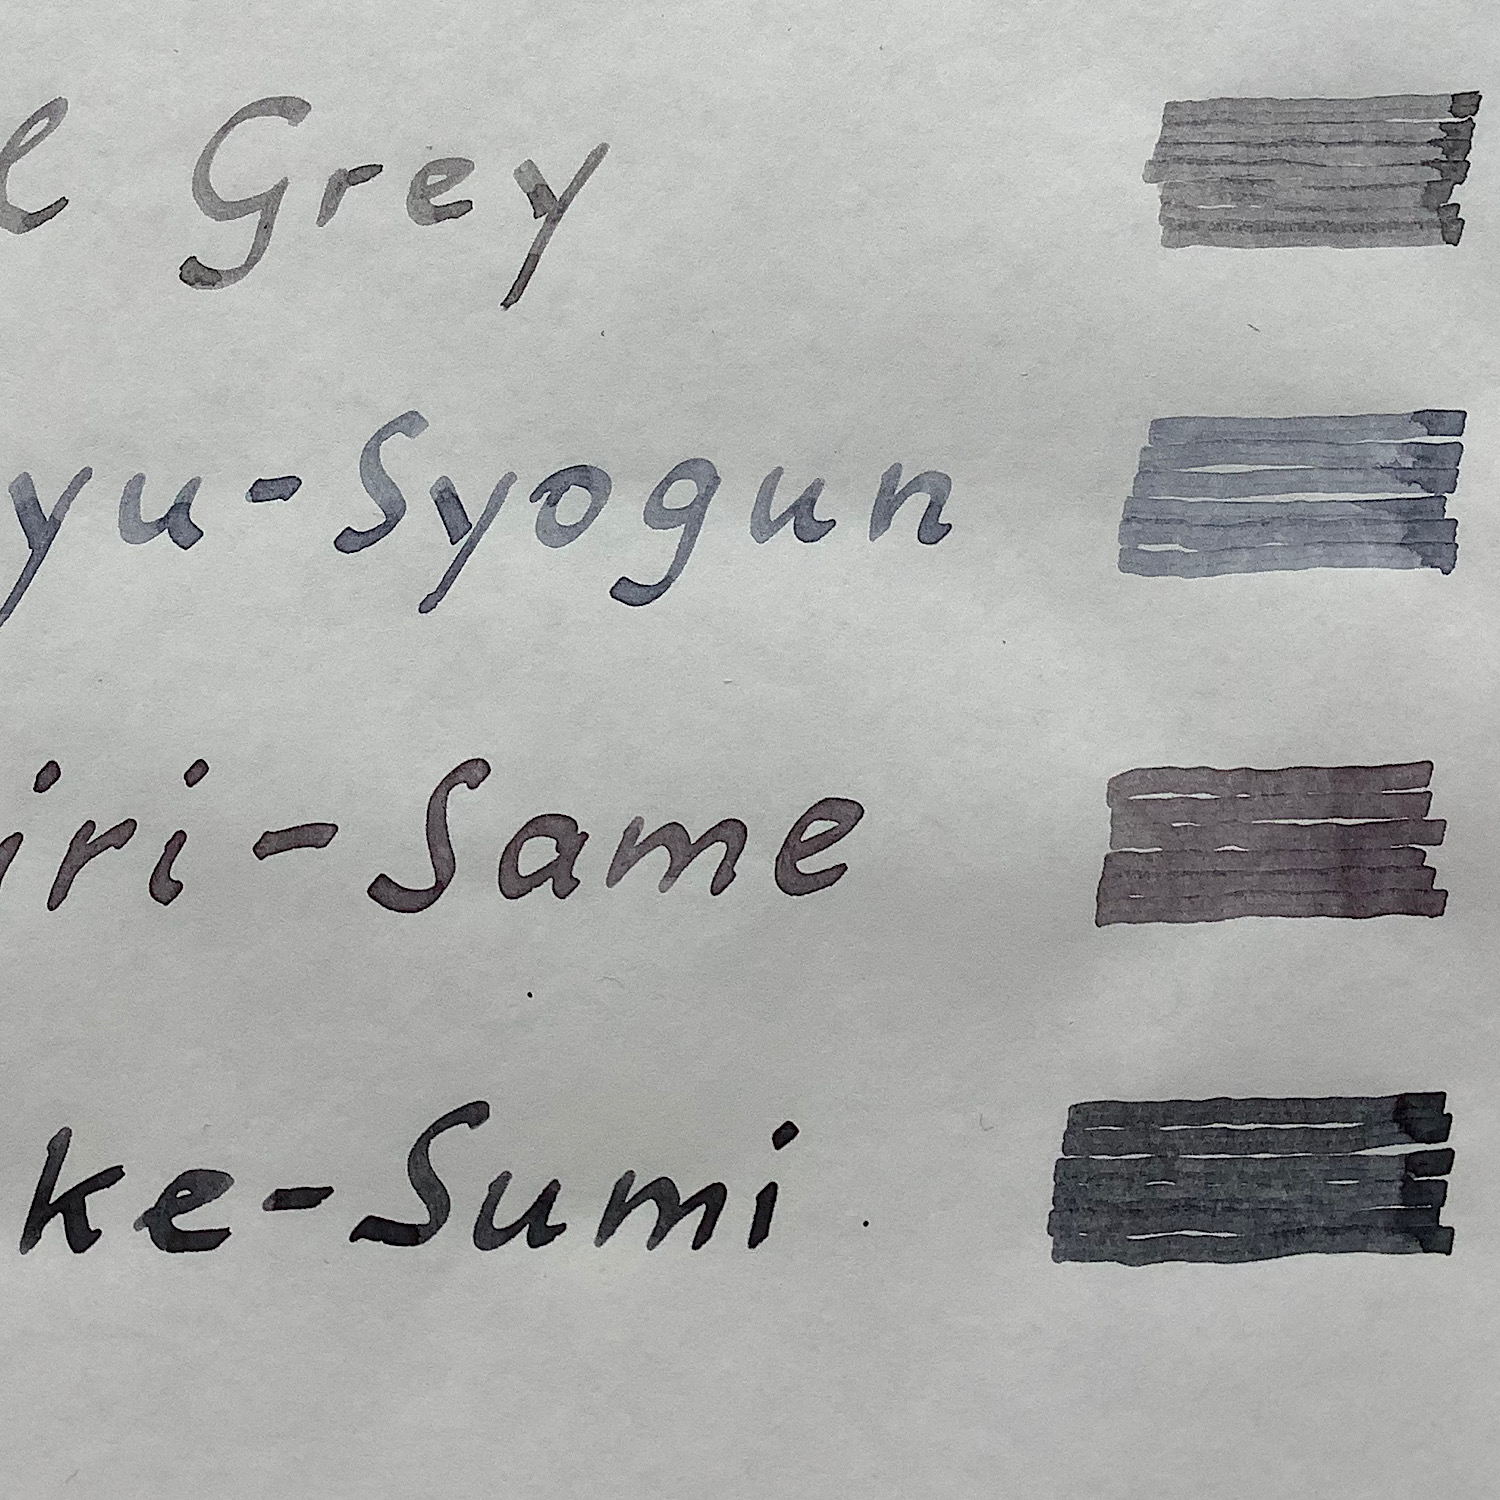 l Grey
yu-Syogun
iri-Same
ke-Sumi